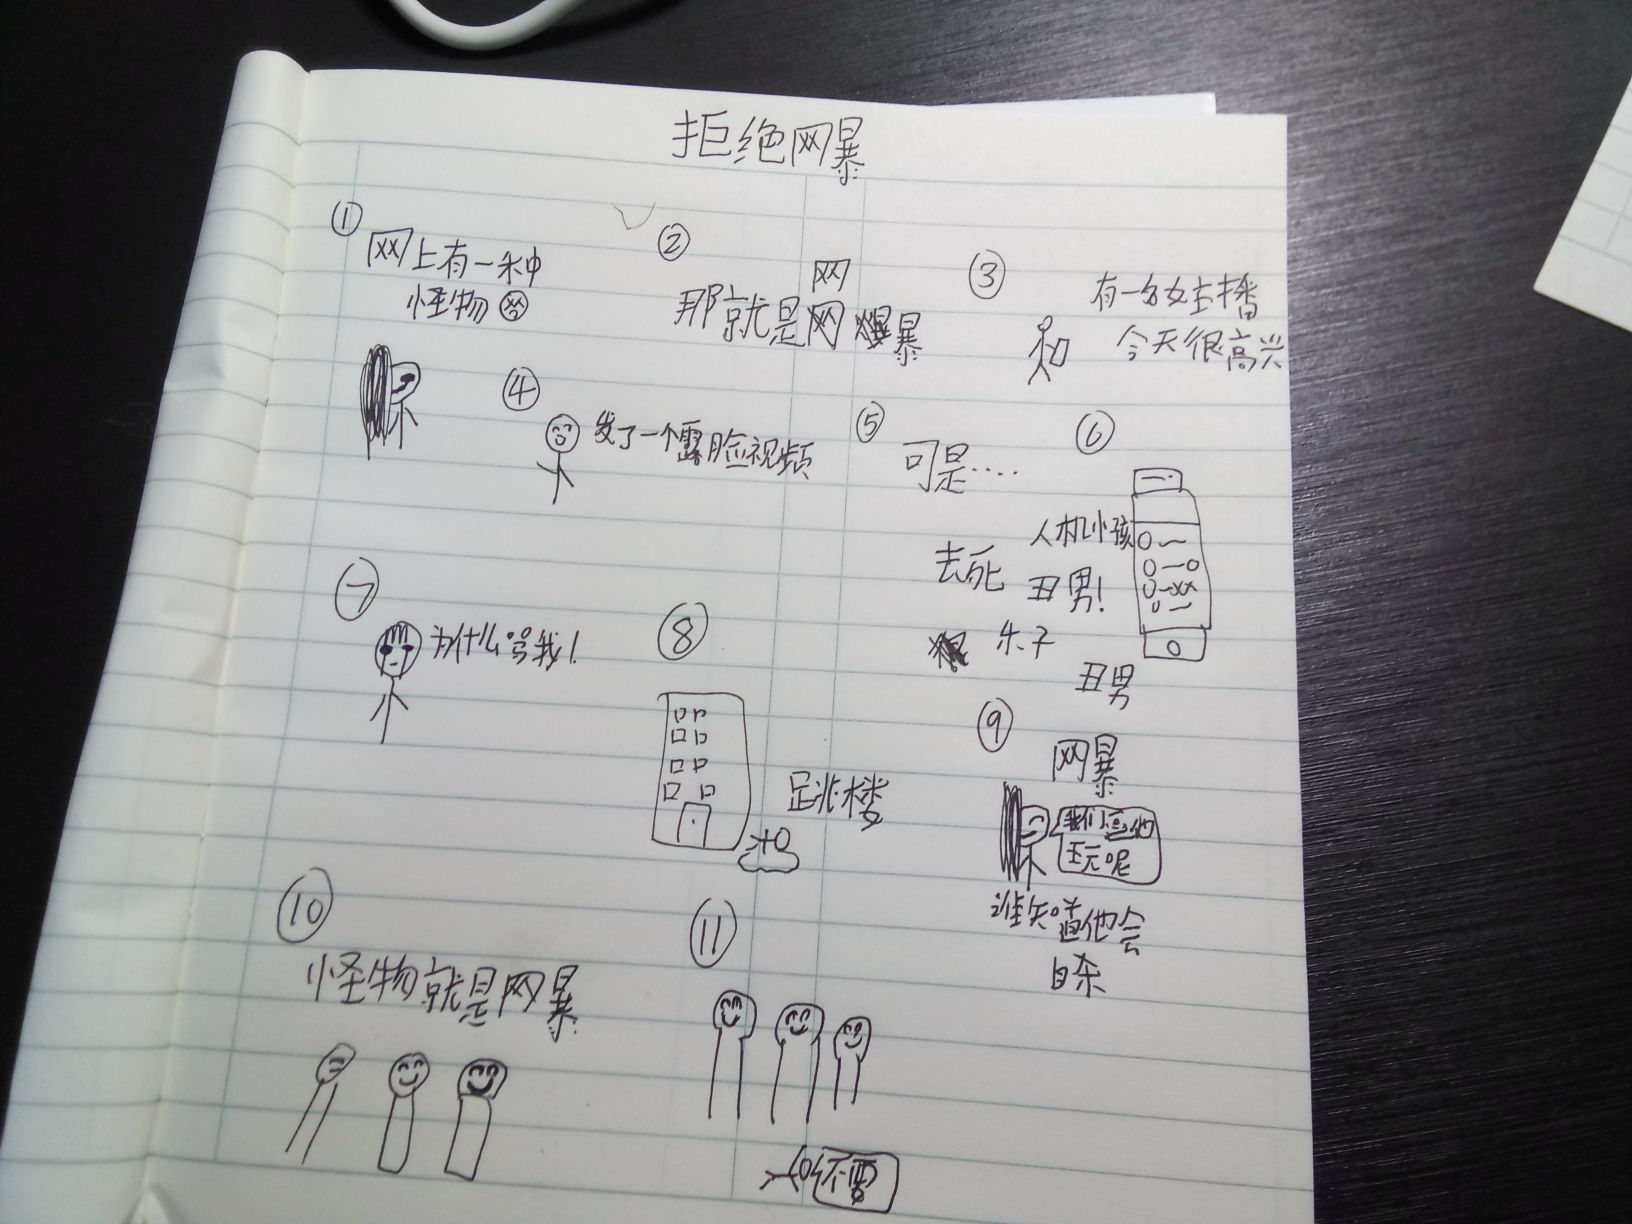 拒绝网暴
①
网上有一种
怪物
②
网
那就是网暴
③
有一名女主播
今天很高兴
④
发了一个露脸视频
⑤
可是....
⑥
人机小孩
去死
丑男!
朱子
丑男
⑦
为什么骂我!
⑧
跳楼
⑨
网暴
我们逗他
玩呢
谁知道他会
自杀
⑩
怪物就是网暴
⑪
不要